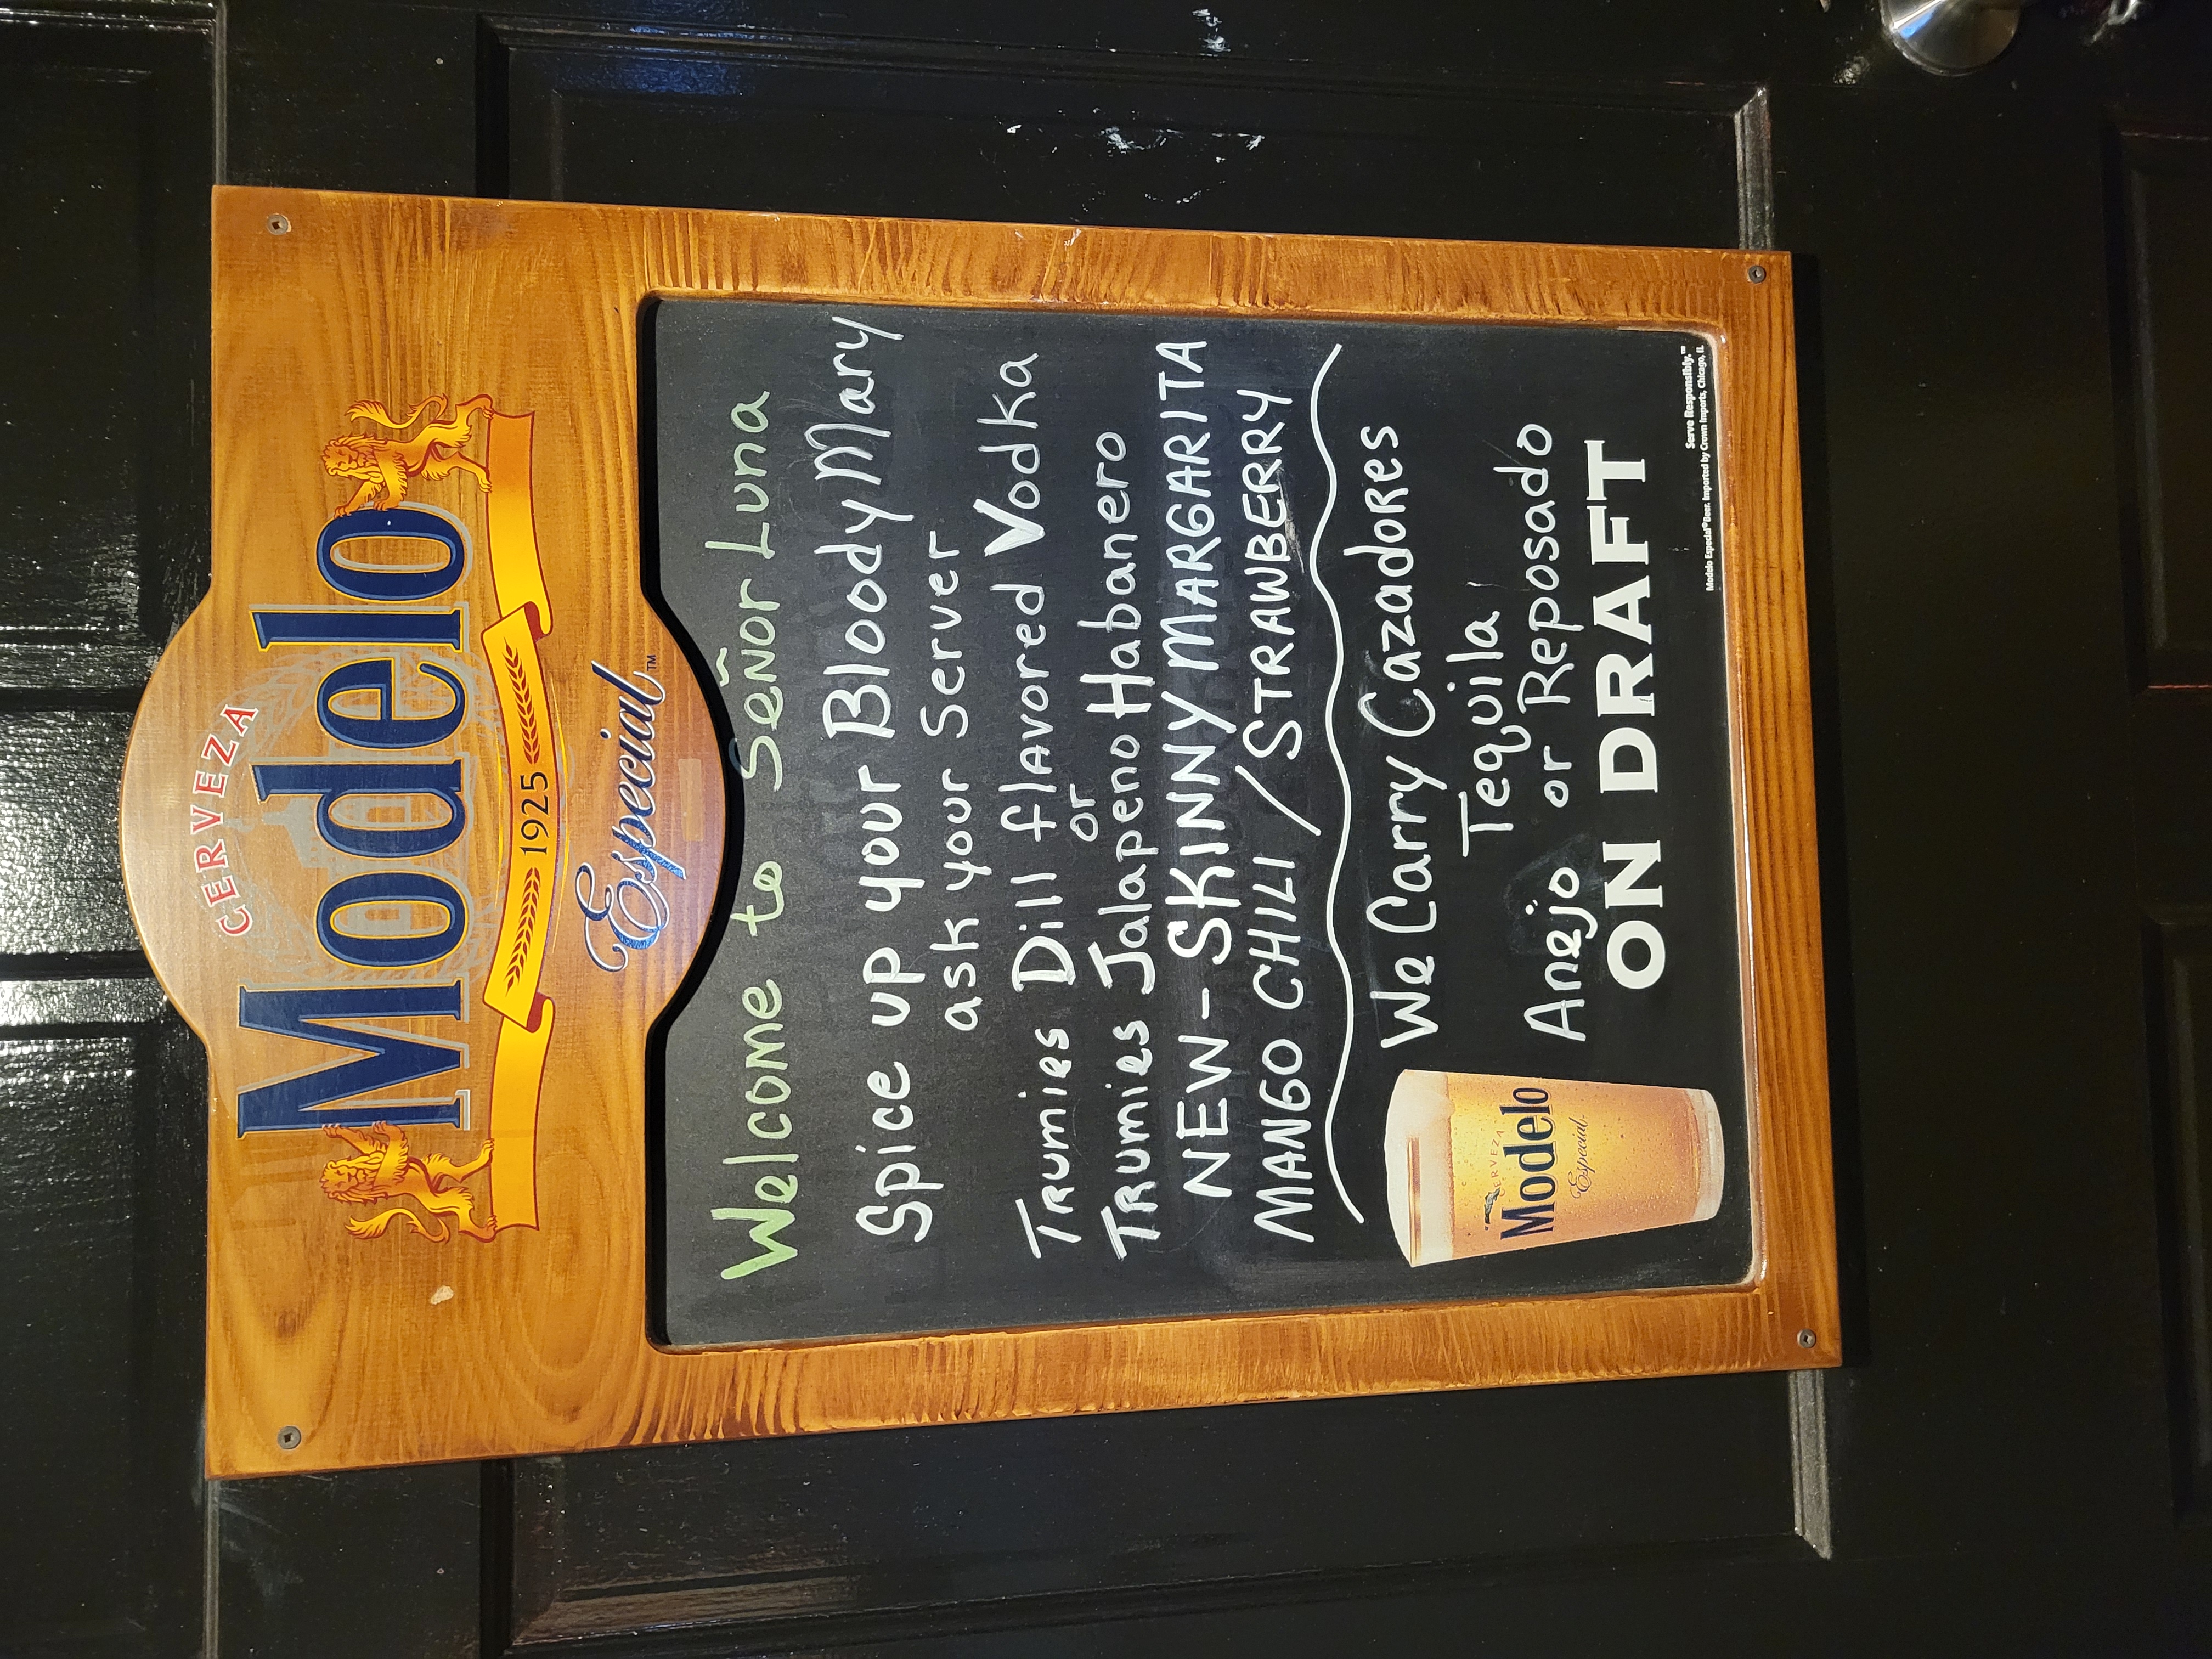 CERVEZA
Modelo
1925
Especial™
Welcome to Señor Luna
Spice up your Bloody Mary
ask your Server
Trumies Dill flavored Vodka
or
Trumies Jalapeno Habanero
NEW - SKINNY MARGARITA
MANGO CHILI / STRAWBERRY
We Carry Cazadores
Tequila
Anejo or Reposado
ON DRAFT
CERVEZA
Modelo
Especial
Serve Responsibly.™
Modelo Especial® Beer. Imported by Crown Imports, Chicago, IL